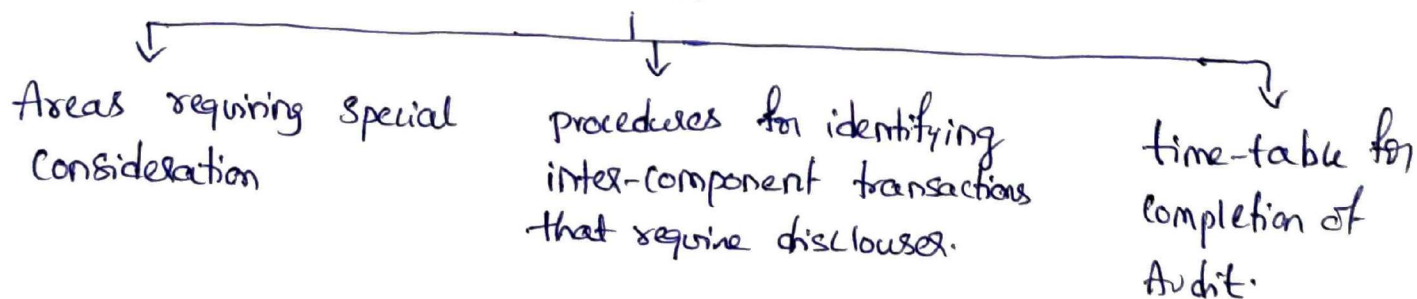 Areas requiring special
consideration
procedures for identifying
inter-component transactions
that require disclouser.
time-table for
completion of
Audit.